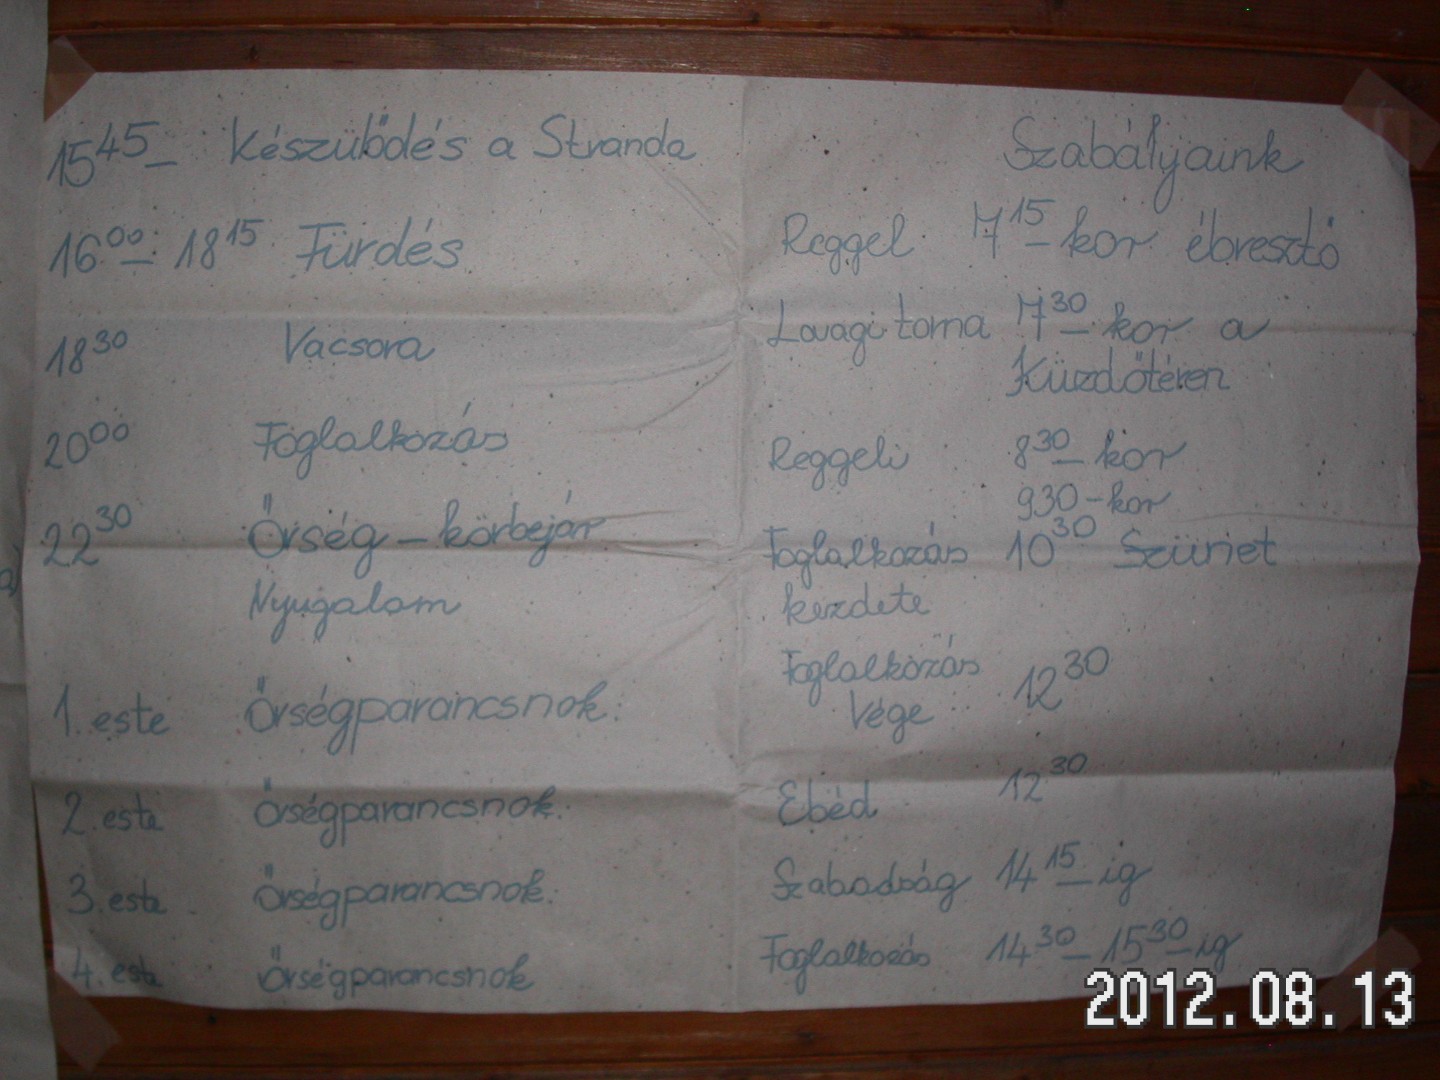 15 45- Készülődés a Stranda
16 00- 18 15 Fürdés
18 30 Vacsora
20 00 Foglalkozás
22 30 Őrség - körbejár
Nyugalom
1. este Őrségparancsnok:
2. este Őrségparancsnok:
3. este Őrségparancsnok:
4. este Őrségparancsnok
Szabályaink
Reggel 7 15-kor ébresztő
Lovagi torna 7 30-kor a
Küzdőtéren
Reggeli 8 30-kor
930-kor
Foglalkozás 10 30 Szünet
kezdete
Foglalkozás 12 30
Vége
Ebéd 12 30
Szabadság 14 15-ig
Foglalkozás 14 30-15 30-ig
2012.08.13